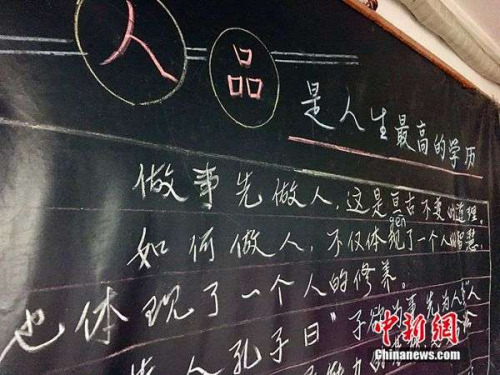 人品
是人生最高的学历
做事先做人,这是亘古不变的道理。
gèn
如何做人,不仅体现了一个人的智慧,
也体现了一个人的修养。
人孔子曰"子欲为事,先为人
中新网
Chinanews.com